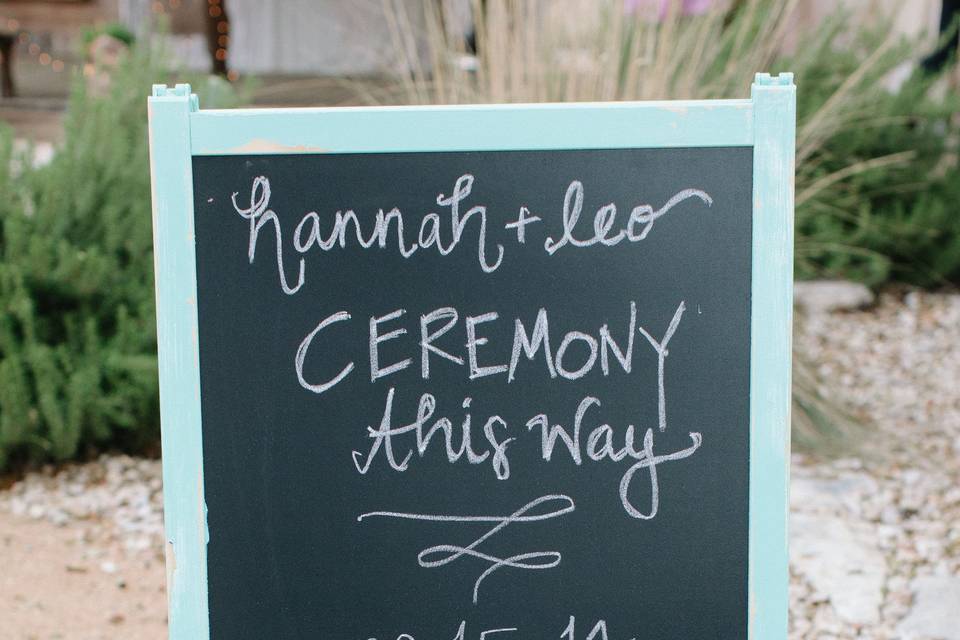 hannah + leo
CEREMONY
this way